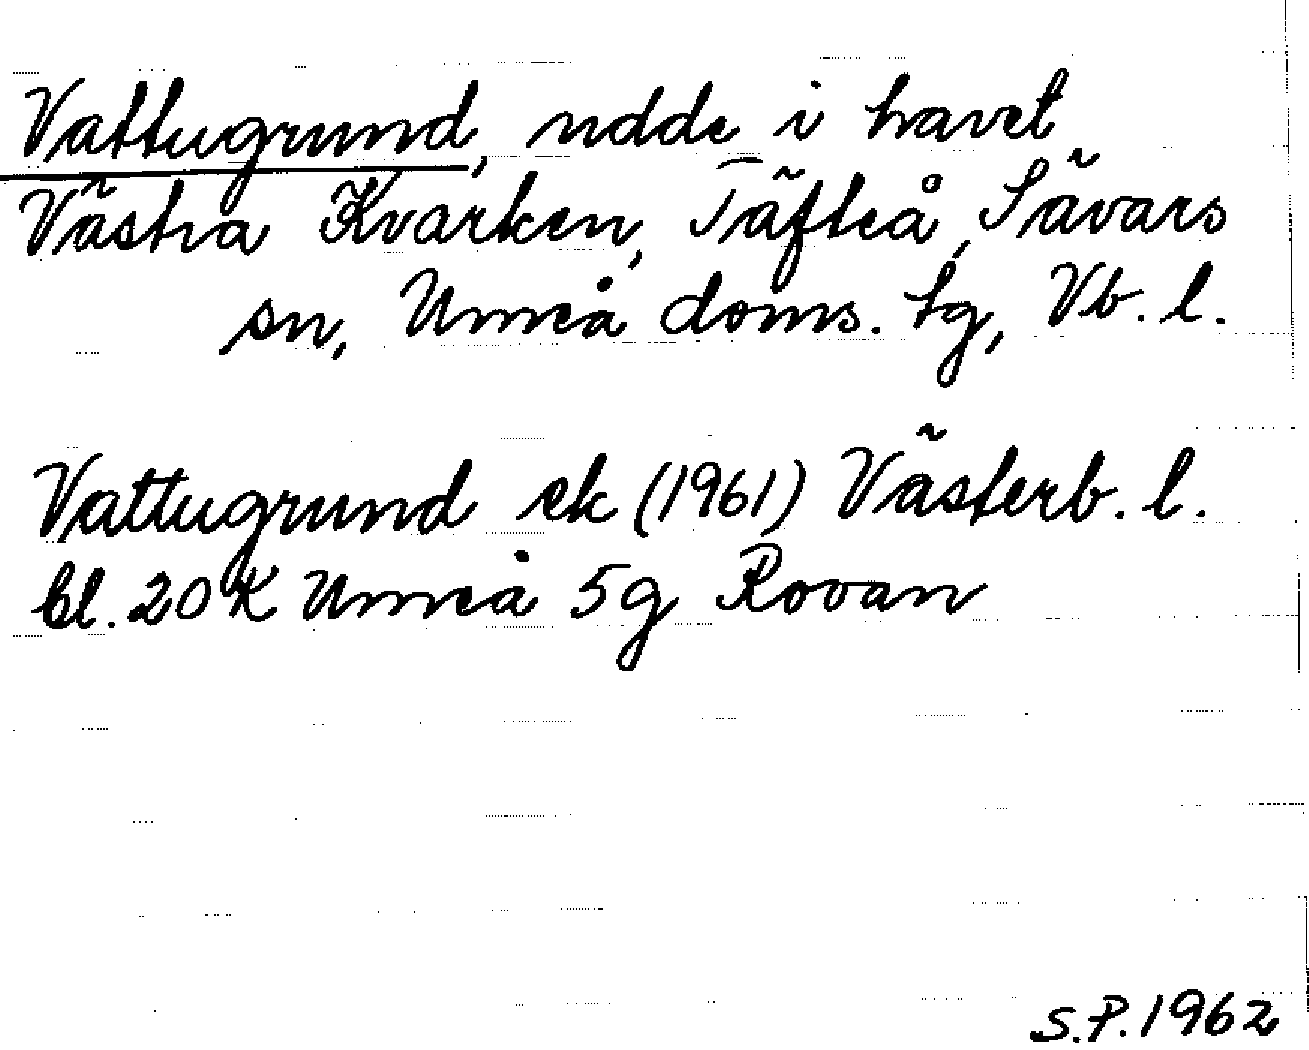 Vattugrund, udde i havet
Västra Kvarken, Täfteå, Sävars
sn, Umeå doms. tg, Vb. l.
Vattugrund ek (1961) Västerb. l.
bl. 20 K Umeå 5g Rovan
S.P. 1962